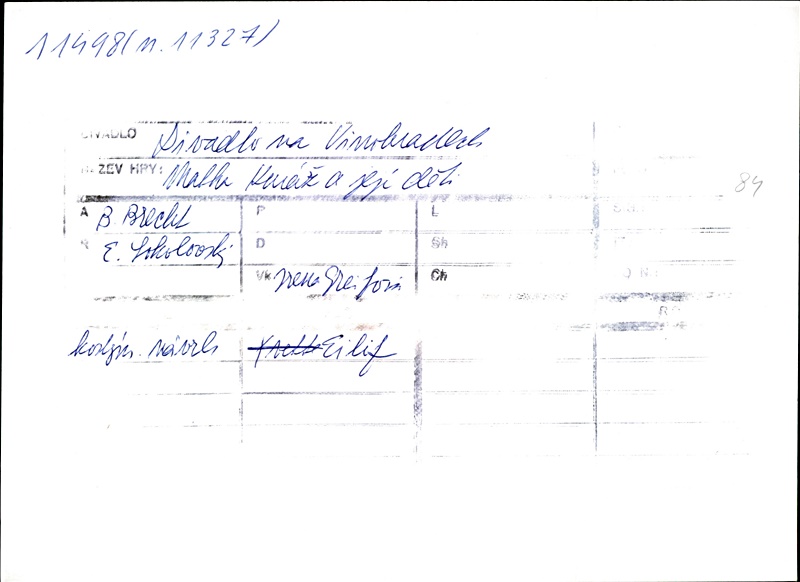 11498(n. 11327)
DIVADLO Divadlo na Vinohradech
NÁZEV HRY: Matka Kuráž a její děti
84
A B. Brecht P L
R E. Sokolovský D Sh
Vk. Irena Greifová Ch
kostým. návrh Yvette Eilif